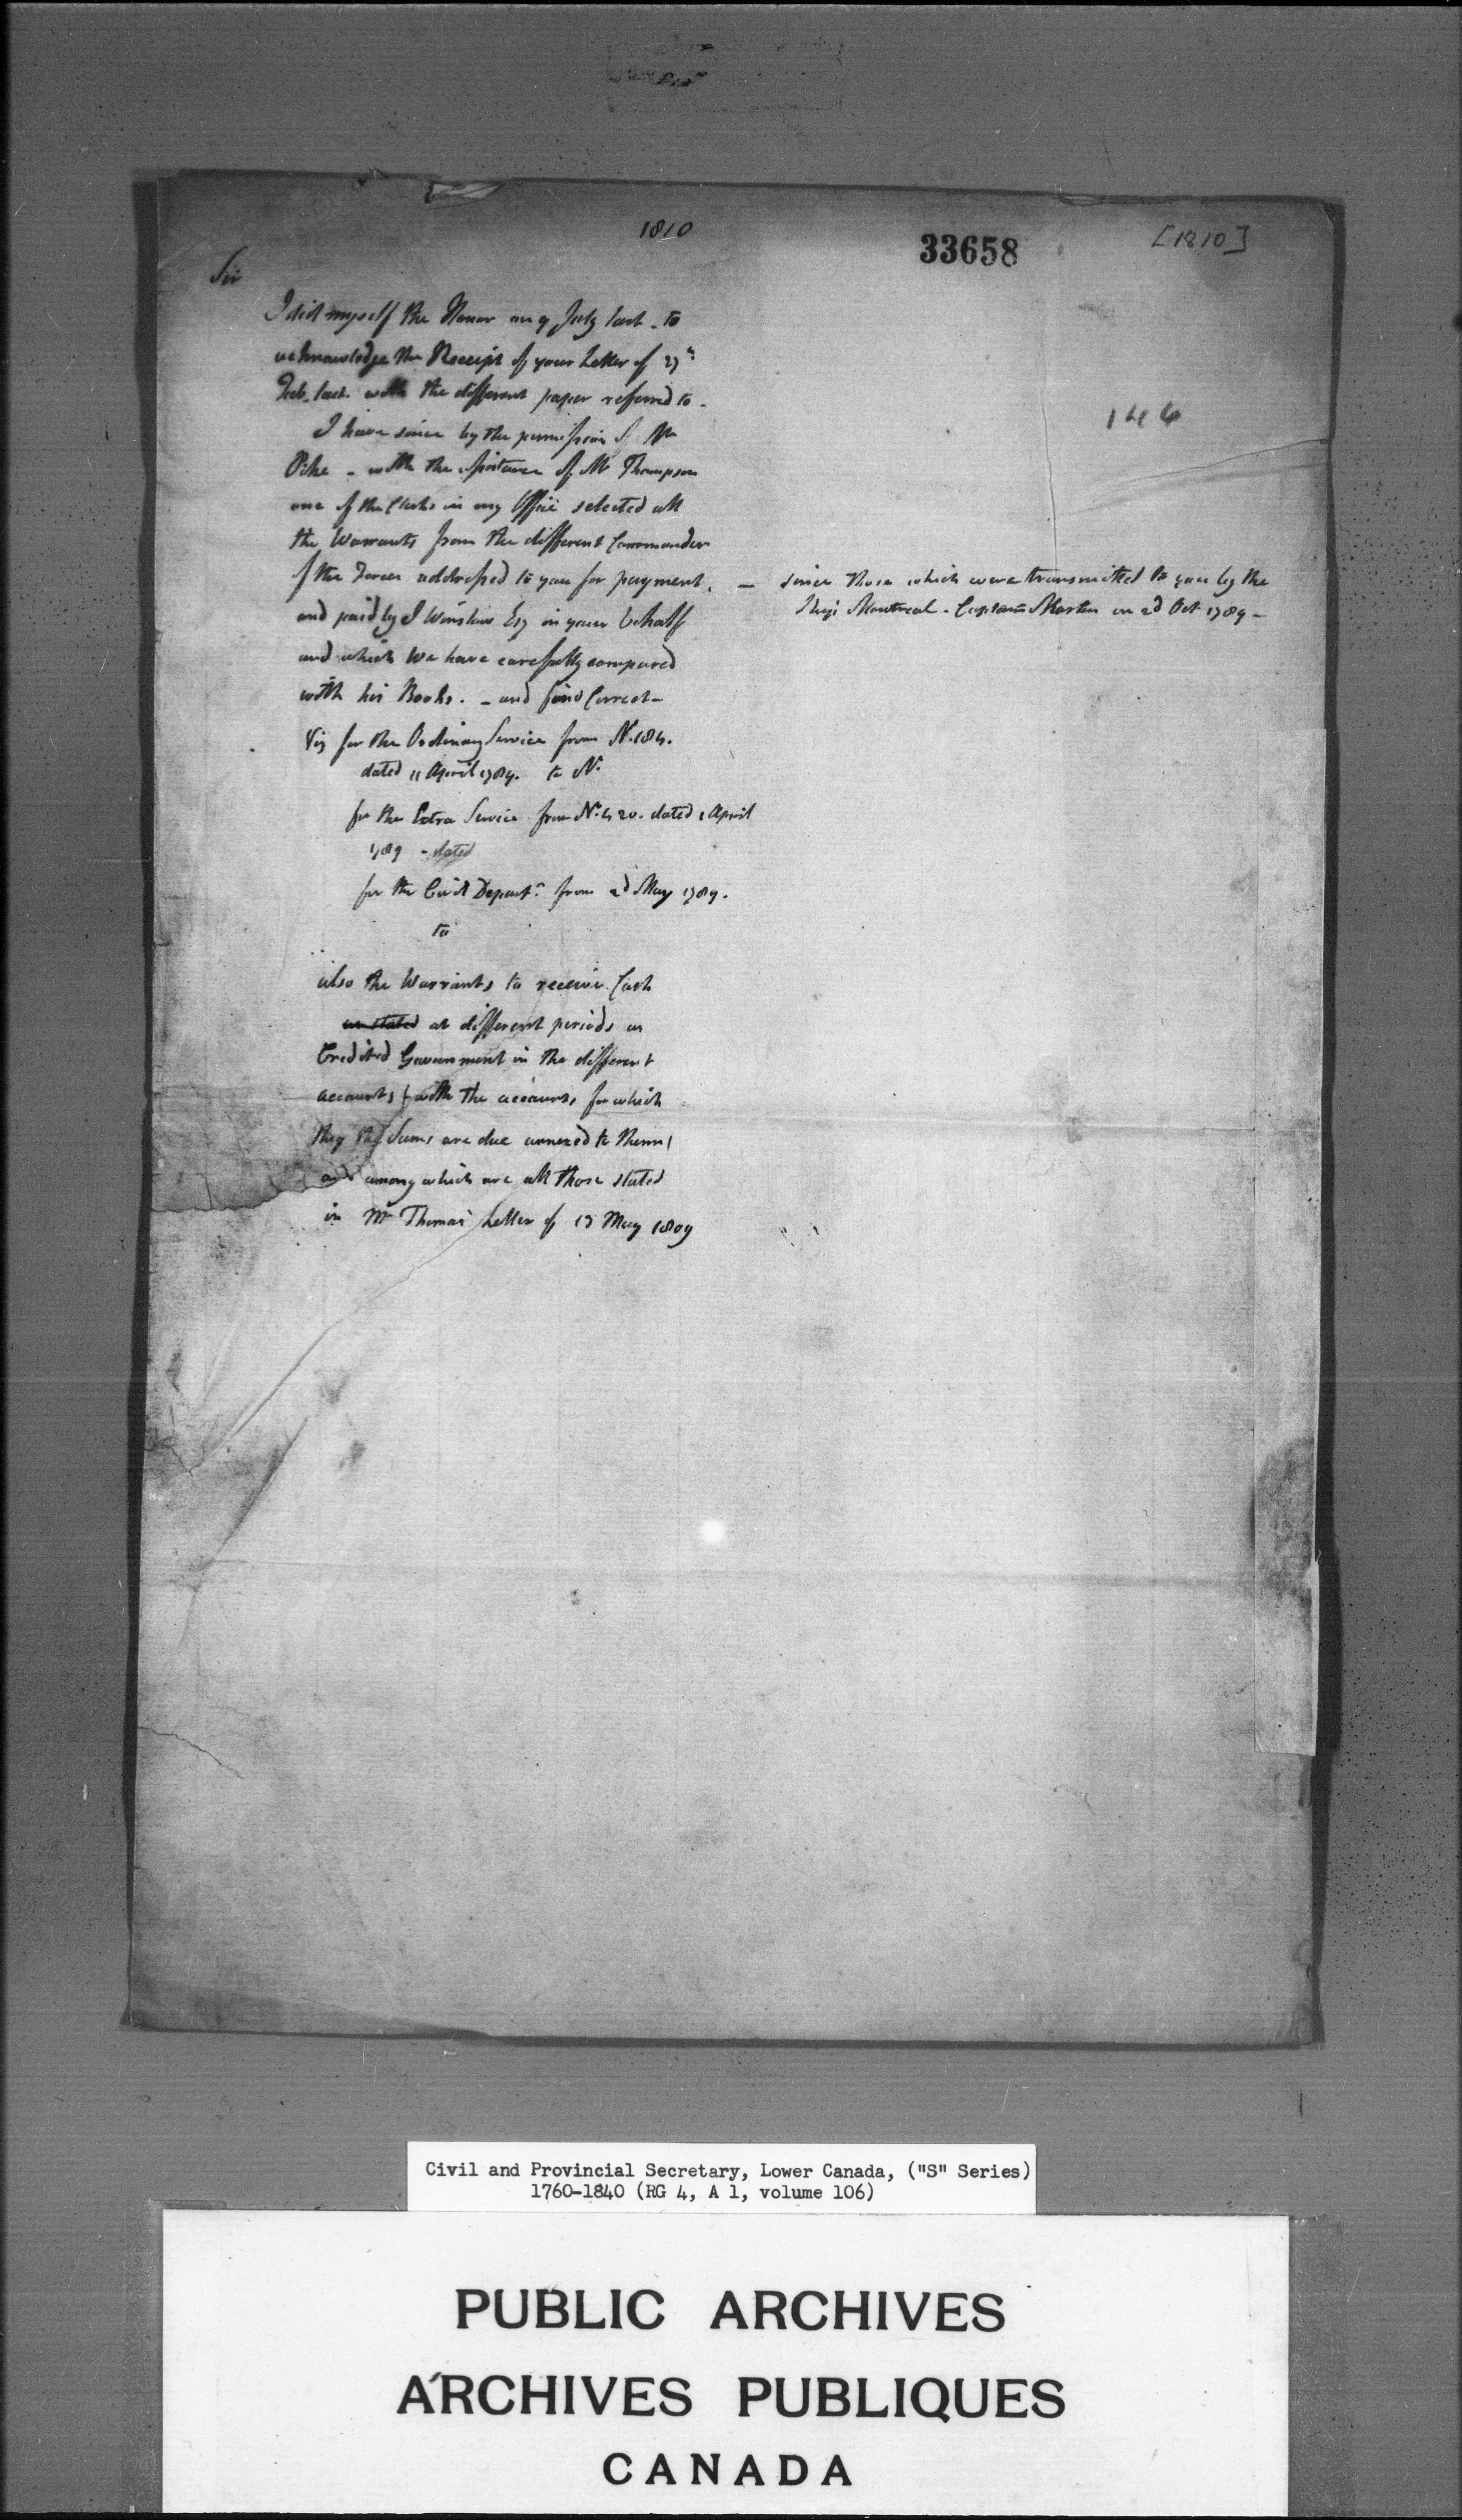 1810
33658
[1810]
146
Sir
I did myself the Honor on 9 July last - to
acknowledge the Receipt of your Letter of 27th
Feb. last with the different paper referred to -
I have since by the permission of Mr
Pike - with the assistance of Mr Thompson
one of the Clerks in my Office selected all
the Warrants from the different Commander
of the Forces addressed to you for payment. —
since those which were transmitted to you by the
Ship Montreal - Captain Martin on 2d Oct 1789 -
and paid by J Winslow Esq in your behalf
and which We have carefully compared
with his Books. - and find Correct -
Viz for the Ordinary Service from No. 184.
dated 11 April 1789. to No
for the Extra Service from No. 420. dated 1 April
1789 - dated
for the Civil Departt from 2d May 1789.
to
also the Warrants to receive Cash
as stated at different periods as
Credited Government in the different
accounts (with the accounts for which
they the Sums are due annexed to them)
and among which are all those stated
in Mr Thomas' Letter of 13 May 1809
Civil and Provincial Secretary, Lower Canada, ("S" Series)
1760-1840 (RG 4, A 1, volume 106)
PUBLIC ARCHIVES
ARCHIVES PUBLIQUES
CANADA